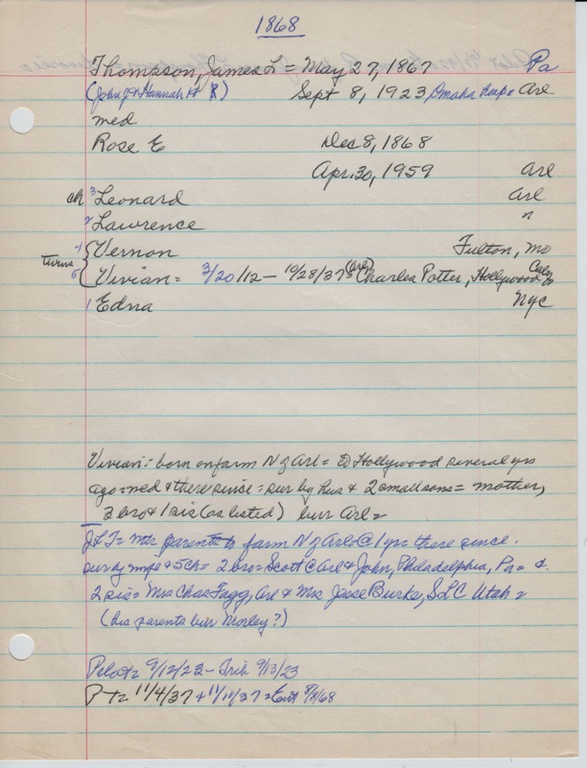 1868
Thompson, James L = May 27, 1867 Pa
(John J & Hannah) Sept 8, 1923 Omaha Hosp = Arl
med
Rose E Dec 8, 1868
Apr. 30, 1959 Arl
ch 3 Leonard Arl
2 Lawrence "
twins 4 { Vernon Fulton, Mo
5 Vivian = 3/20/12 - 10/28/37 = (Arl) Charles Potter, Hollywood Calif
1 Edna NYC
Vivian: born on farm N of Arl = to Hollywood several yrs
ago = med & there since = sur by hus & 2 small sons = mother,
3 bro & 1 sis (as listed) burr Arl =
JLT = parents to farm N of Arl @ 1 yr = there since.
sur by & 5 ch = 2 bro = Scott C Arl & John, Philadelphia, Pa = &
2 sis = Mrs Chas Fagg, Arl & Mrs Jesse Burke, SLC Utah =
(his parents burr Morley?)
Pilot = 9/12/23 - Trib 9/13/23
P T = 11/4/37 + 11/11/37 = Ent 8/8/68